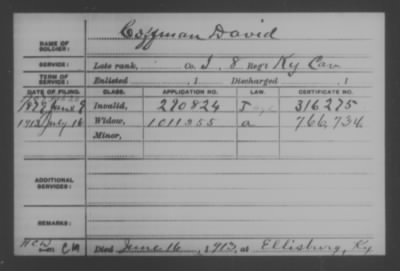 NAME OF SOLDIER: Coffman David
SERVICE: Late rank, Co. I, 8 Reg't Ky Cav
TERM OF SERVICE: Enlisted , 1 Discharged , 1
DATE OF FILING. CLASS. APPLICATION NO. LAW. CERTIFICATE NO.
1879 June 9 Invalid, 290824 316275
1913 July 16 Widow, 1011355 a 766,734
Minor,
ADDITIONAL SERVICES:
REMARKS:
Died June 16, 1913, at Ellisburg, Ky